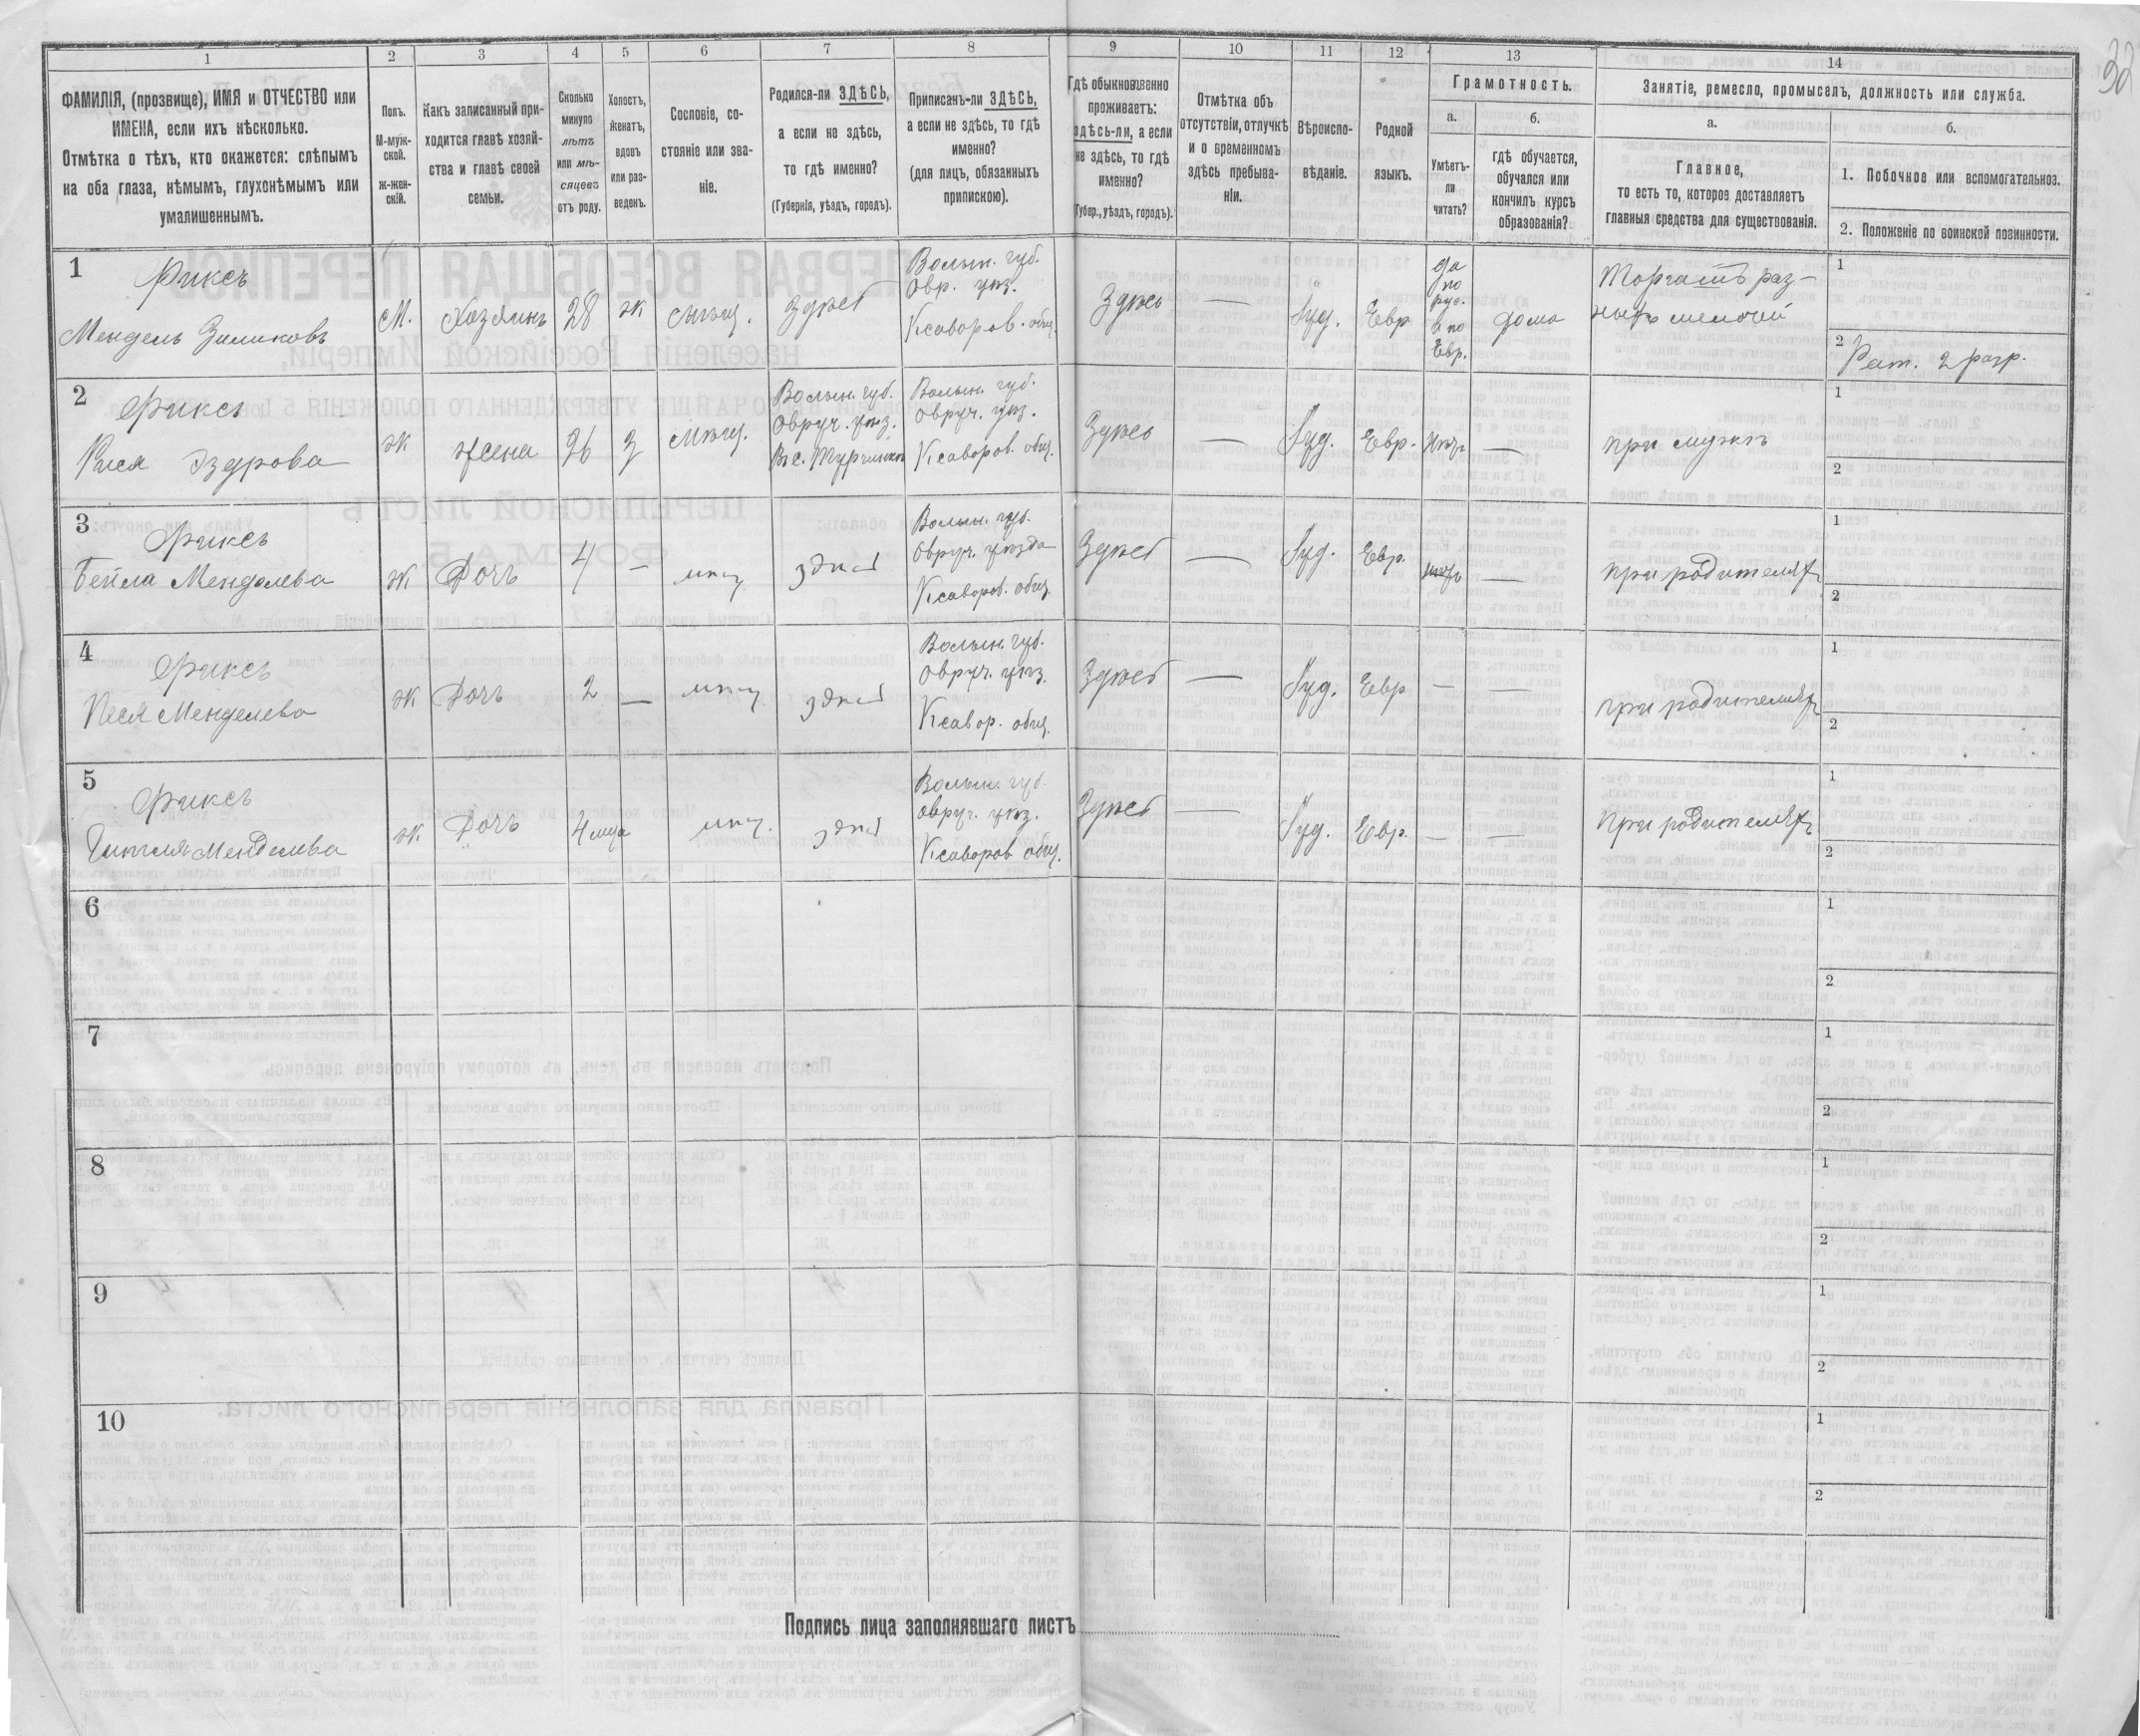 32
1
2
3
4
5
6
7
8
9
10
11
12
13
14
ФАМИЛІЯ, (прозвище), ИМЯ и ОТЧЕСТВО или
ИМЕНА, если ихъ нѣсколько.
Отмѣтка о тѣхъ, кто окажется: слѣпымъ
на оба глаза, нѣмымъ, глухонѣмымъ или
умалишеннымъ.
Полъ.
М-муж-
ской.
Ж-жен-
скій.
Какъ записанный при-
ходится главѣ хозяй-
ства и главѣ своей
семьи.
Сколько
минуло
лѣтъ
или мѣ-
сяцевъ
отъ роду.
Холостъ,
женатъ,
вдовъ
или раз-
веденъ.
Сословіе, со-
стояніе или зва-
ніе.
Родился-ли ЗДѢСЬ,
а если не здѣсь,
то гдѣ именно?
(Губернія, уѣздъ, городъ).
Приписанъ-ли ЗДѢСЬ,
а если не здѣсь, то гдѣ
именно?
(для лицъ, обязанныхъ
припискою).
Гдѣ обыкновенно
проживаетъ:
здѣсь-ли, а если
не здѣсь, то гдѣ
именно?
(Губер., уѣздъ, городъ).
Отмѣтка объ
отсутствіи, отлучкѣ
и о временномъ
здѣсь пребыва-
ніи.
Вѣроиспо-
вѣданіе.
Родной
языкъ.
Грамотность.
а.
Умѣетъ-
ли
читать?
б.
гдѣ обучается,
обучался или
кончилъ курсъ
образованія?
Занятіе, ремесло, промыселъ, должность или служба.
а.
Главное,
то есть то, которое доставляетъ
главныя средства для существованія.
б.
1. Побочное или вспомогательное.
2. Положеніе по воинской повинности.
1
Фиксъ
Мендель Зиликовъ
М.
Хозяинъ
28
ж
мѣщ.
Здѣсь
Волын. губ.
Овр. уѣз.
Ксаворов. общ.
Здѣсь
—
Іуд.
Евр
да
по
рус.
и по
Евр.
дома
Торгашъ раз-
ныхъ мелочей
1
2
Рат. 2 разр.
2
Фиксъ
Рися
ж
жена
26
З
Мѣщ.
Волын. губ.
Овруч. уѣз.
Волын. губ.
Овруч. уѣз.
Ксаворов. общ.
Здѣсь
—
Іуд.
Евр.
Нѣтъ
—
при мужѣ
1
2
3
Фиксъ
Бейла Менделева
ж
Дочь
4
—
мѣщ
здѣсь
Волын. губ.
Овруч. уѣзда
Ксаворов. общ.
Здѣсь
—
Іуд.
Евр.
—
при родителях
1
2
4
Фиксъ
Песя Менделева
ж
Дочь
2
—
мѣщ
здѣсь
Волын. губ.
Овруч. уѣз.
Ксавор. общ.
Здѣсь
—
Іуд.
Евр
—
—
при родителях
1
2
5
Фиксъ
Менделева
ж
Дочь
4 мца
мѣщ.
здѣсь
Волын. губ.
Овруч. уѣз.
Ксаворов общ.
Здѣсь
—
Іуд.
Евр.
—
—
При родителях
1
2
6
1
2
7
1
2
8
1
2
9
1
2
10
1
2
Подпись лица заполнявшаго листъ